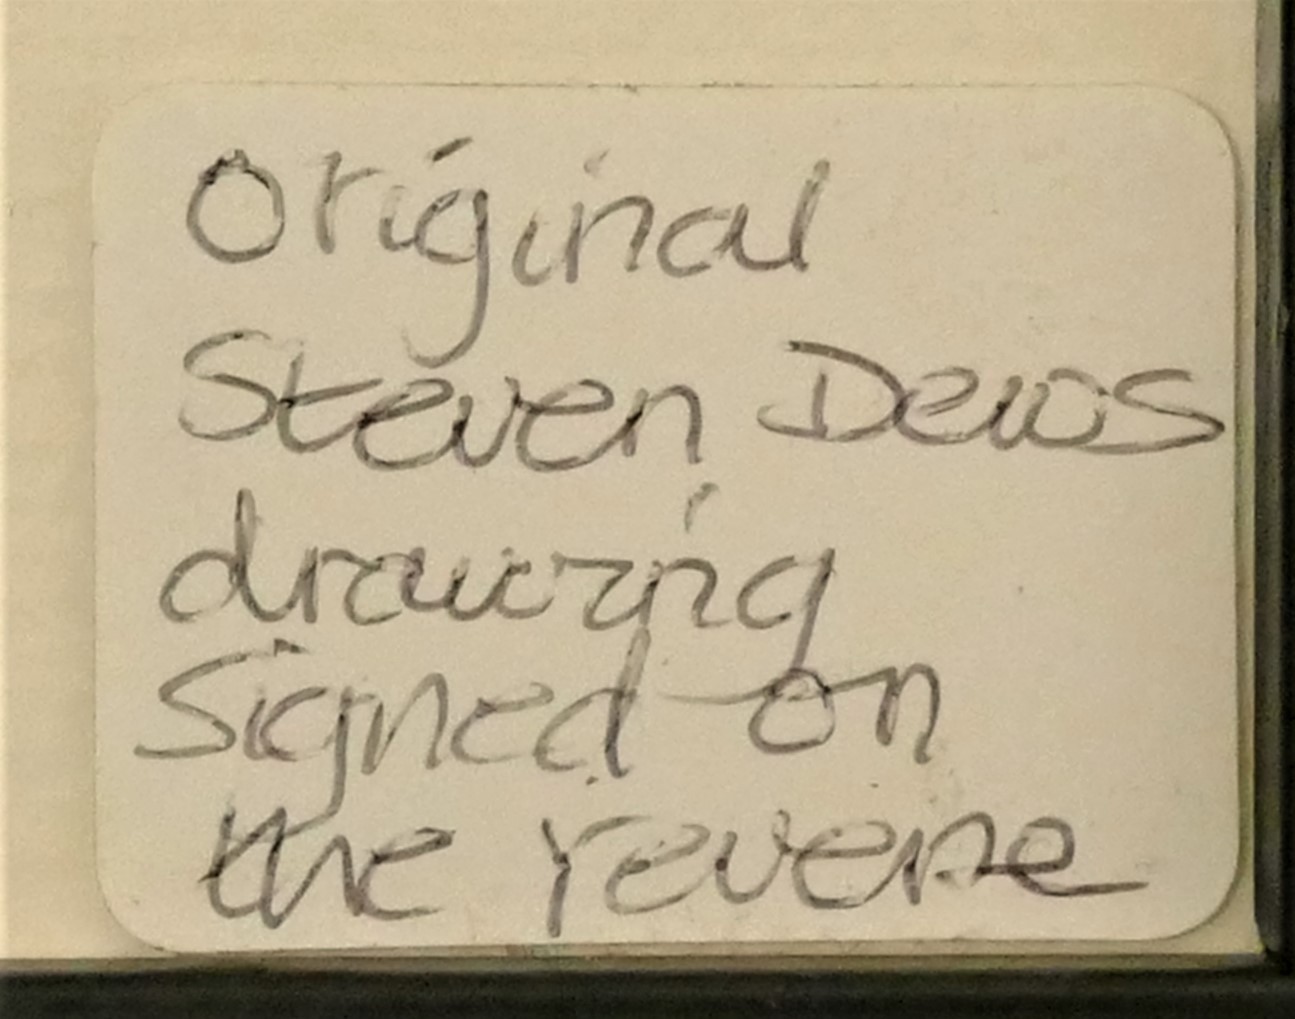 Original
Steven Dews
drawing
Signed on
the reverse